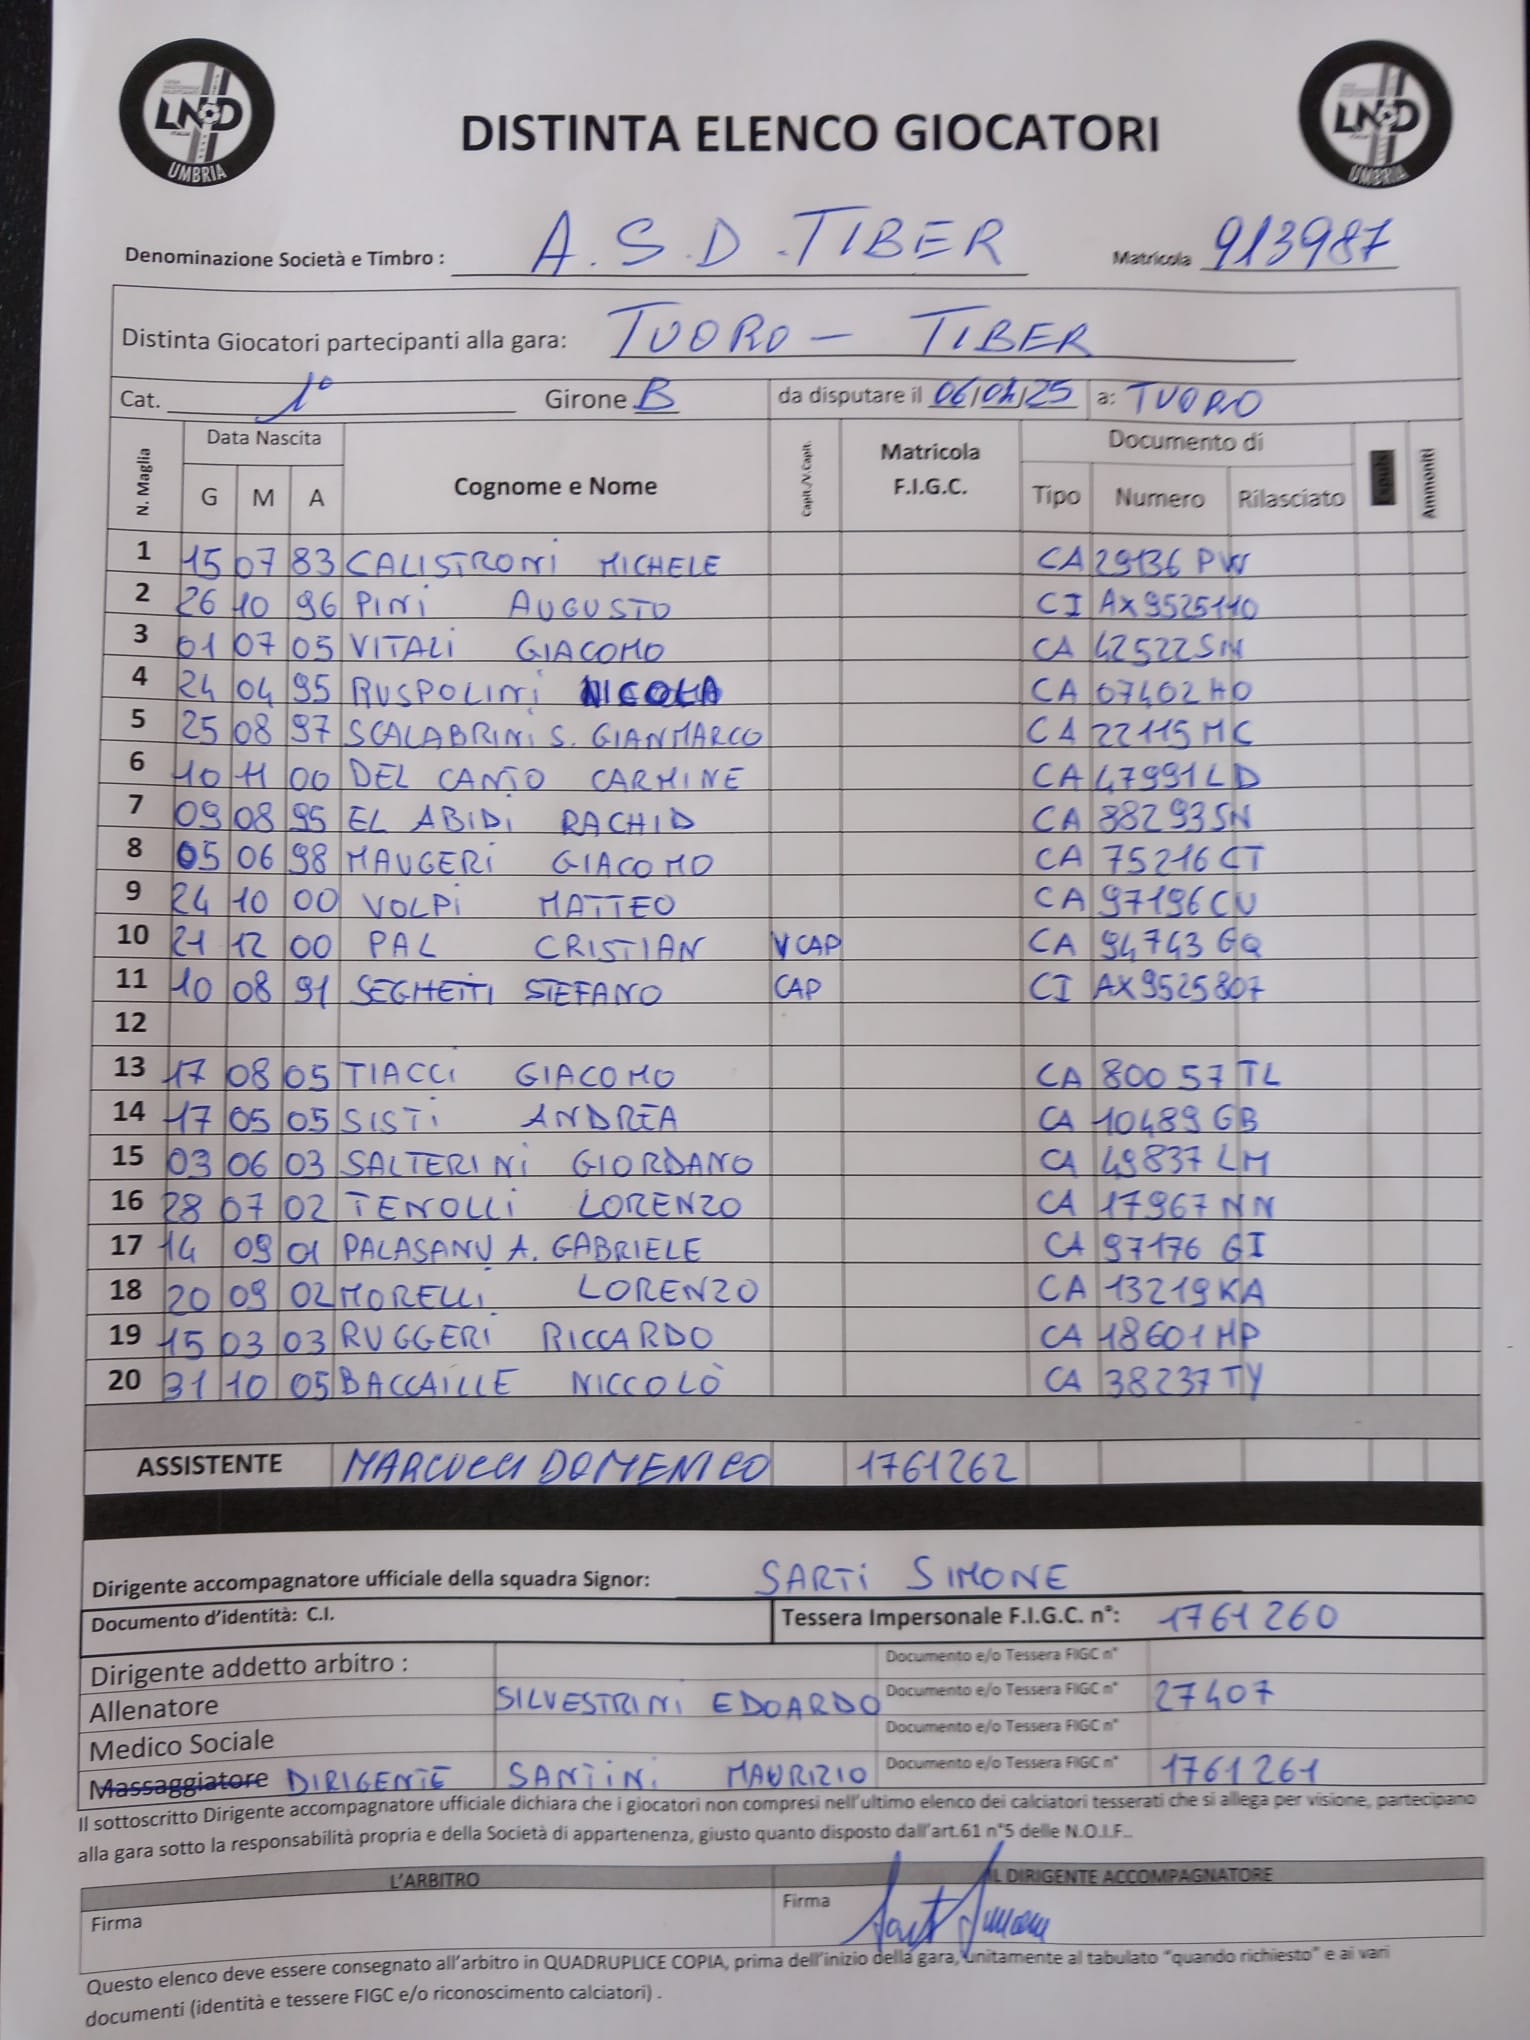 LND
UMBRIA
DISTINTA ELENCO GIOCATORI
LND
UMBRIA
Denominazione Società e Timbro : A.S.D. TIBER Matricola 913987
Distinta Giocatori partecipanti alla gara: TUORO - TIBER
Cat. 1° Girone B da disputare il 06/04/25 a: TUORO
N. Maglia Data Nascita Cognome e Nome Capit./V.Capit. Matricola F.I.G.C. Documento di Ammoniti
G M A Tipo Numero Rilasciato
1 15 07 83 CALISTRONI MICHELE CA 29136 PW
2 26 10 96 PINI AUGUSTO CI AX9525110
3 01 07 05 VITALI GIACOMO CA 42522SN
4 24 04 95 RUSPOLINI NICOLA CA 07402HO
5 25 08 97 SCALABRINI S. GIANMARCO CA 22115MC
6 10 11 00 DEL CANTO CARMINE CA 47991LD
7 09 08 95 EL ABIDI RACHID CA 88293SN
8 05 06 98 MAUGERI GIACOMO CA 75216CT
9 24 10 00 VOLPI MATTEO CA 97196CU
10 21 12 00 PAL CRISTIAN V CAP CA 94743GQ
11 10 08 91 SEGHETTI STEFANO CAP CI AX9525807
12
13 17 08 05 TIACCI GIACOMO CA 80057TL
14 17 05 05 SISTI ANDREA CA 10489GB
15 03 06 03 SALTERINI GIORDANO CA 49837LM
16 28 07 02 TENOLLI LORENZO CA 17967NN
17 14 09 01 PALASANU A. GABRIELE CA 97176 GI
18 20 09 02 MORELLI LORENZO CA 13219KA
19 15 03 03 RUGGERI RICCARDO CA 18601HP
20 31 10 05 BACCAILLE NICCOLÒ CA 38237TY
ASSISTENTE MARCUCCI DOMENICO 1761262
Dirigente accompagnatore ufficiale della squadra Signor: SARTI SIMONE
Documento d'identità: C.I. Tessera Impersonale F.I.G.C. n°: 1761260
Dirigente addetto arbitro : Documento e/o Tessera FIGC n°
Allenatore SILVESTRINI EDOARDO Documento e/o Tessera FIGC n° 27407
Medico Sociale Documento e/o Tessera FIGC n°
Massaggiatore DIRIGENTE SANTINI MAURIZIO Documento e/o Tessera FIGC n° 1761261
Il sottoscritto Dirigente accompagnatore ufficiale dichiara che i giocatori non compresi nell'ultimo elenco dei calciatori tesserati che si allega per visione, partecipano
alla gara sotto la responsabilità propria e della Società di appartenenza, giusto quanto disposto dall'art.61 n°5 delle N.O.I.F..
L'ARBITRO IL DIRIGENTE ACCOMPAGNATORE
Firma Firma
Questo elenco deve essere consegnato all'arbitro in QUADRUPLICE COPIA, prima dell'inizio della gara, unitamente al tabulato "quando richiesto" e ai vari
documenti (identità e tessere FIGC e/o riconoscimento calciatori) .